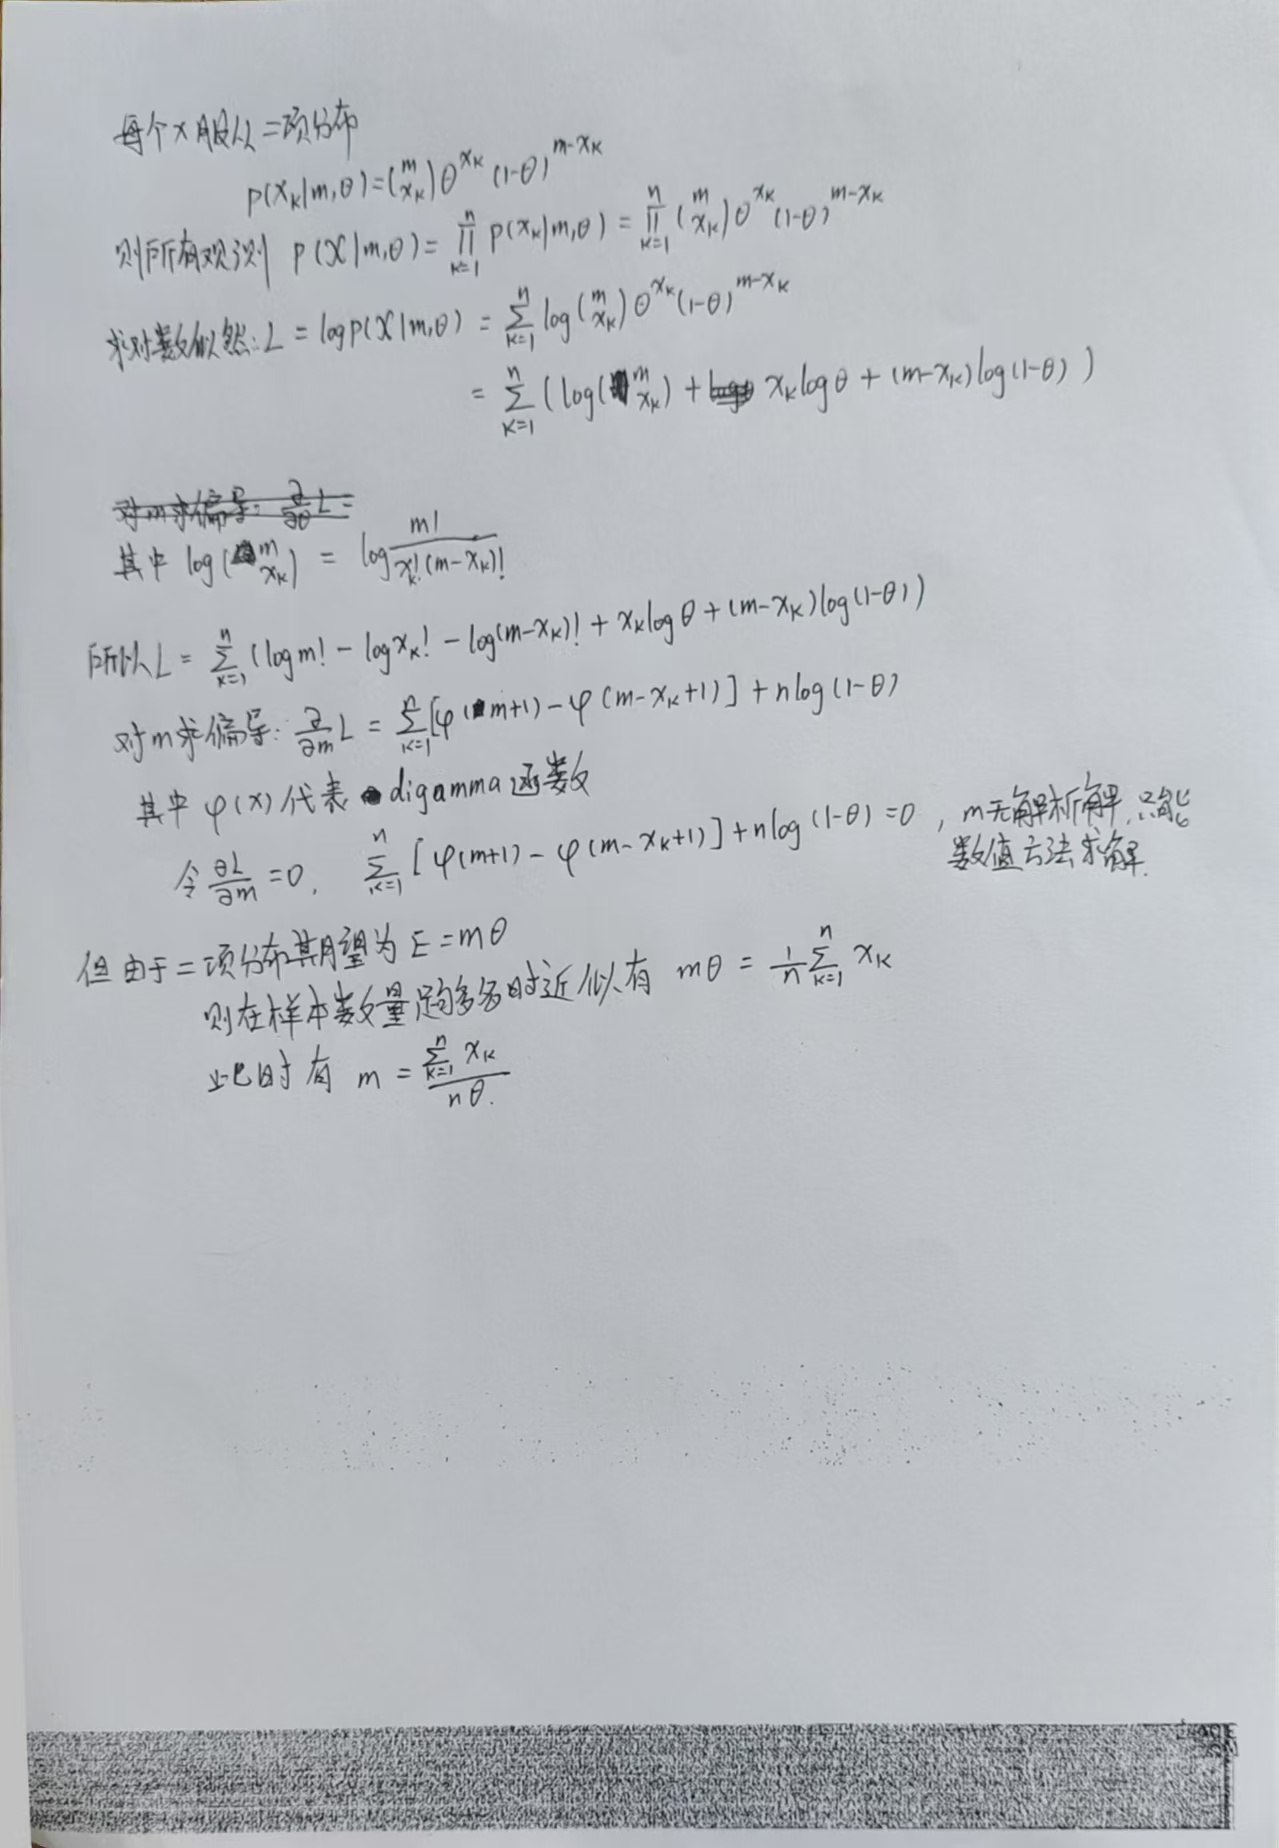 每个x服从二项分布
p(xₖ|m,θ)=(m xₖ)θ^xₖ (1-θ)^m-xₖ
则所有观测 p(X|m,θ)= ∏ₖ₌₁ⁿ p(xₖ|m,θ) = ∏ₖ₌₁ⁿ (m xₖ)θ^xₖ (1-θ)^m-xₖ
求对数似然: L = log p(X|m,θ) = ∑ₖ₌₁ⁿ log(m xₖ)θ^xₖ (1-θ)^m-xₖ
= ∑ₖ₌₁ⁿ (log(m xₖ) + xₖ logθ + (m-xₖ)log(1-θ))
对m求偏导: ∂/∂θ L =
其中 log(m xₖ) = log m!/xₖ!(m-xₖ)!
所以 L = ∑ₖ₌₁ⁿ (log m! - log xₖ! - log(m-xₖ)! + xₖ logθ + (m-xₖ)log(1-θ))
对m求偏导: ∂/∂m L = ∑ₖ₌₁ⁿ [φ(m+1) - φ(m-xₖ+1)] + n log(1-θ)
其中 φ(x) 代表 digamma 函数
令 ∂L/∂m = 0, ∑ₖ₌₁ⁿ [φ(m+1) - φ(m-xₖ+1)] + n log(1-θ) = 0, m无解析解,只能
数值方法求解.
但由于二项分布其期望为 E = mθ
则在样本数量足够多时近似有 mθ = 1/n ∑ₖ₌₁ⁿ xₖ
此时有 m = ∑ₖ₌₁ⁿ xₖ / nθ.